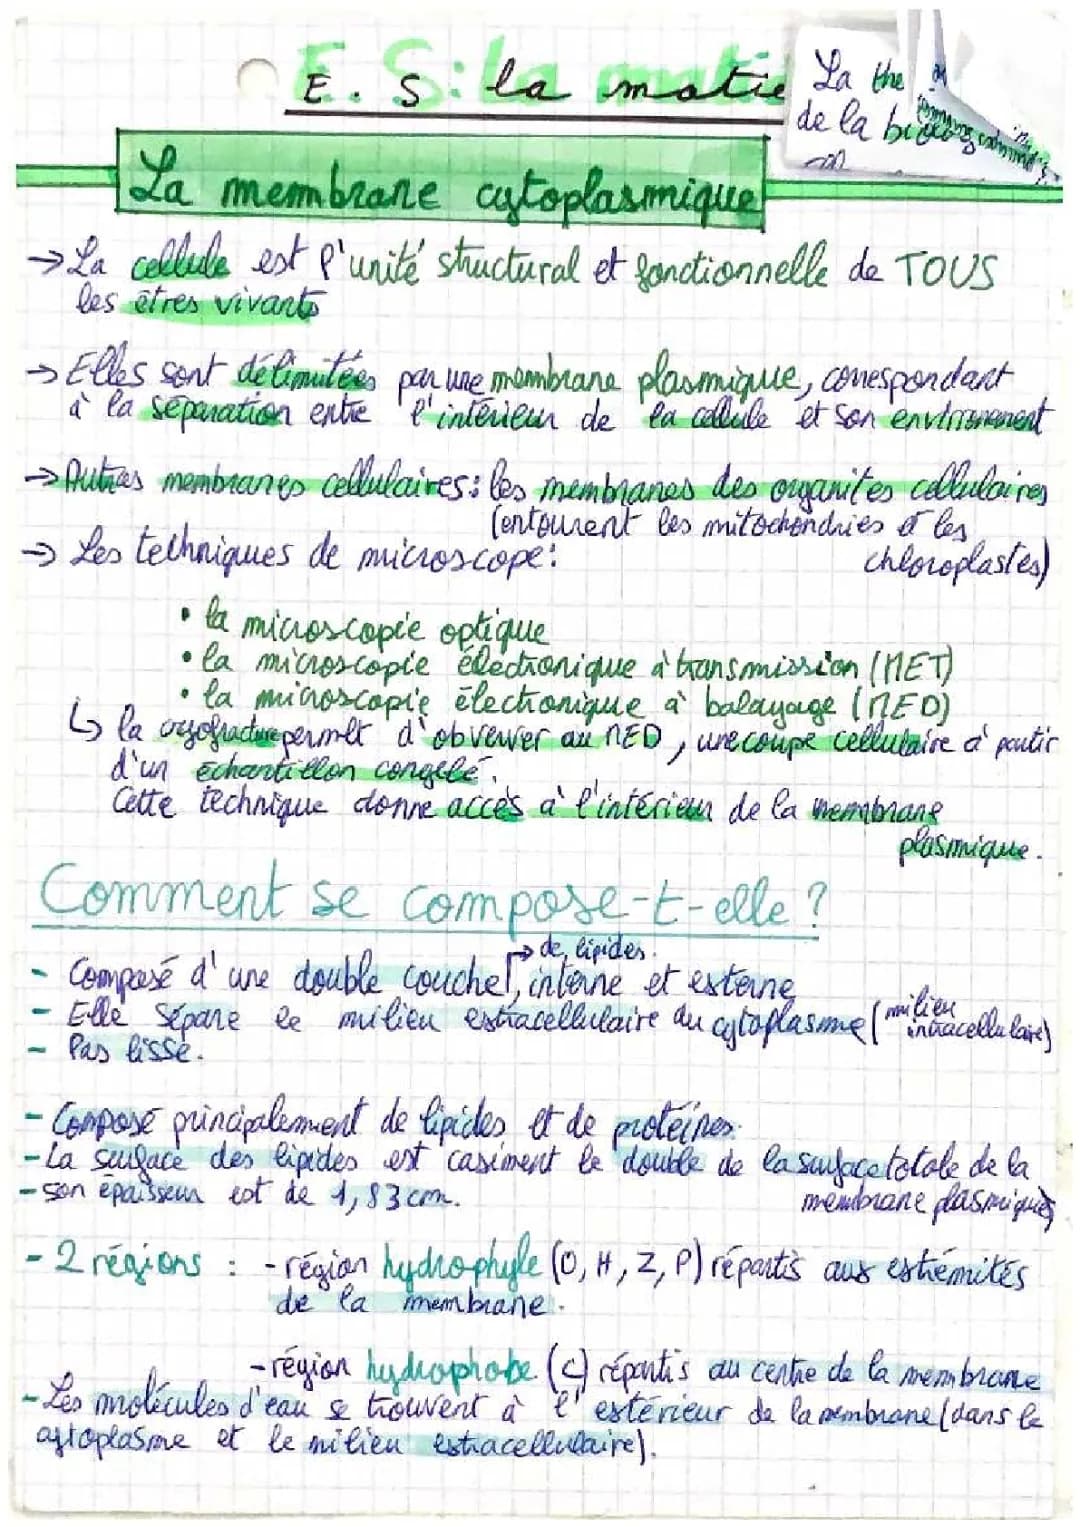 E.S: la matie
La the
de la
La membrane cytoplasmique
→ La cellule est l'unité structural et fonctionnelle de TOUS
les êtres vivants
→ Elles sont délimitées par une membrane plasmique, correspondant
à la séparation entre l'intérieur de la cellule et son environnement
→ Autres membranes cellulaires: les membranes des organites cellulaires
(entourent les mitochondries & les
chloroplastes)
→ Les techniques de microscope:
• la microscopie optique
• la microscopie électronique à transmission (MET)
• la microscopie électronique à balayage (MED)
↳ la cryofracture permet d'observer au MED, une coupe cellulaire à partir
d'un échantillon congelé.
Cette technique donne accès à l'intérieur de la membrane
plasmique.
Comment se compose-t-elle ?
→ de lipides.
- Composé d'une double couche, interne et externe
- Elle sépare le milieu extracellulaire du cytoplasme (milieu
intracellulaire)
- Pas lisse.
- Composé principalement de lipides et de protéines.
- La surface des lipides est casiment le double de la surface totale de la
membrane plasmique
- son épaisseur est de 1,83 cm.
- 2 régions : - région hydrophyle (O, H, Z, P) répartis aux extrémités
de la membrane.
- région hydrophobe (C) répartis au centre de la membrane
- Les molécules d'eau se trouvent à l'extérieur de la membrane (dans le
cytoplasme et le milieu extracellulaire).